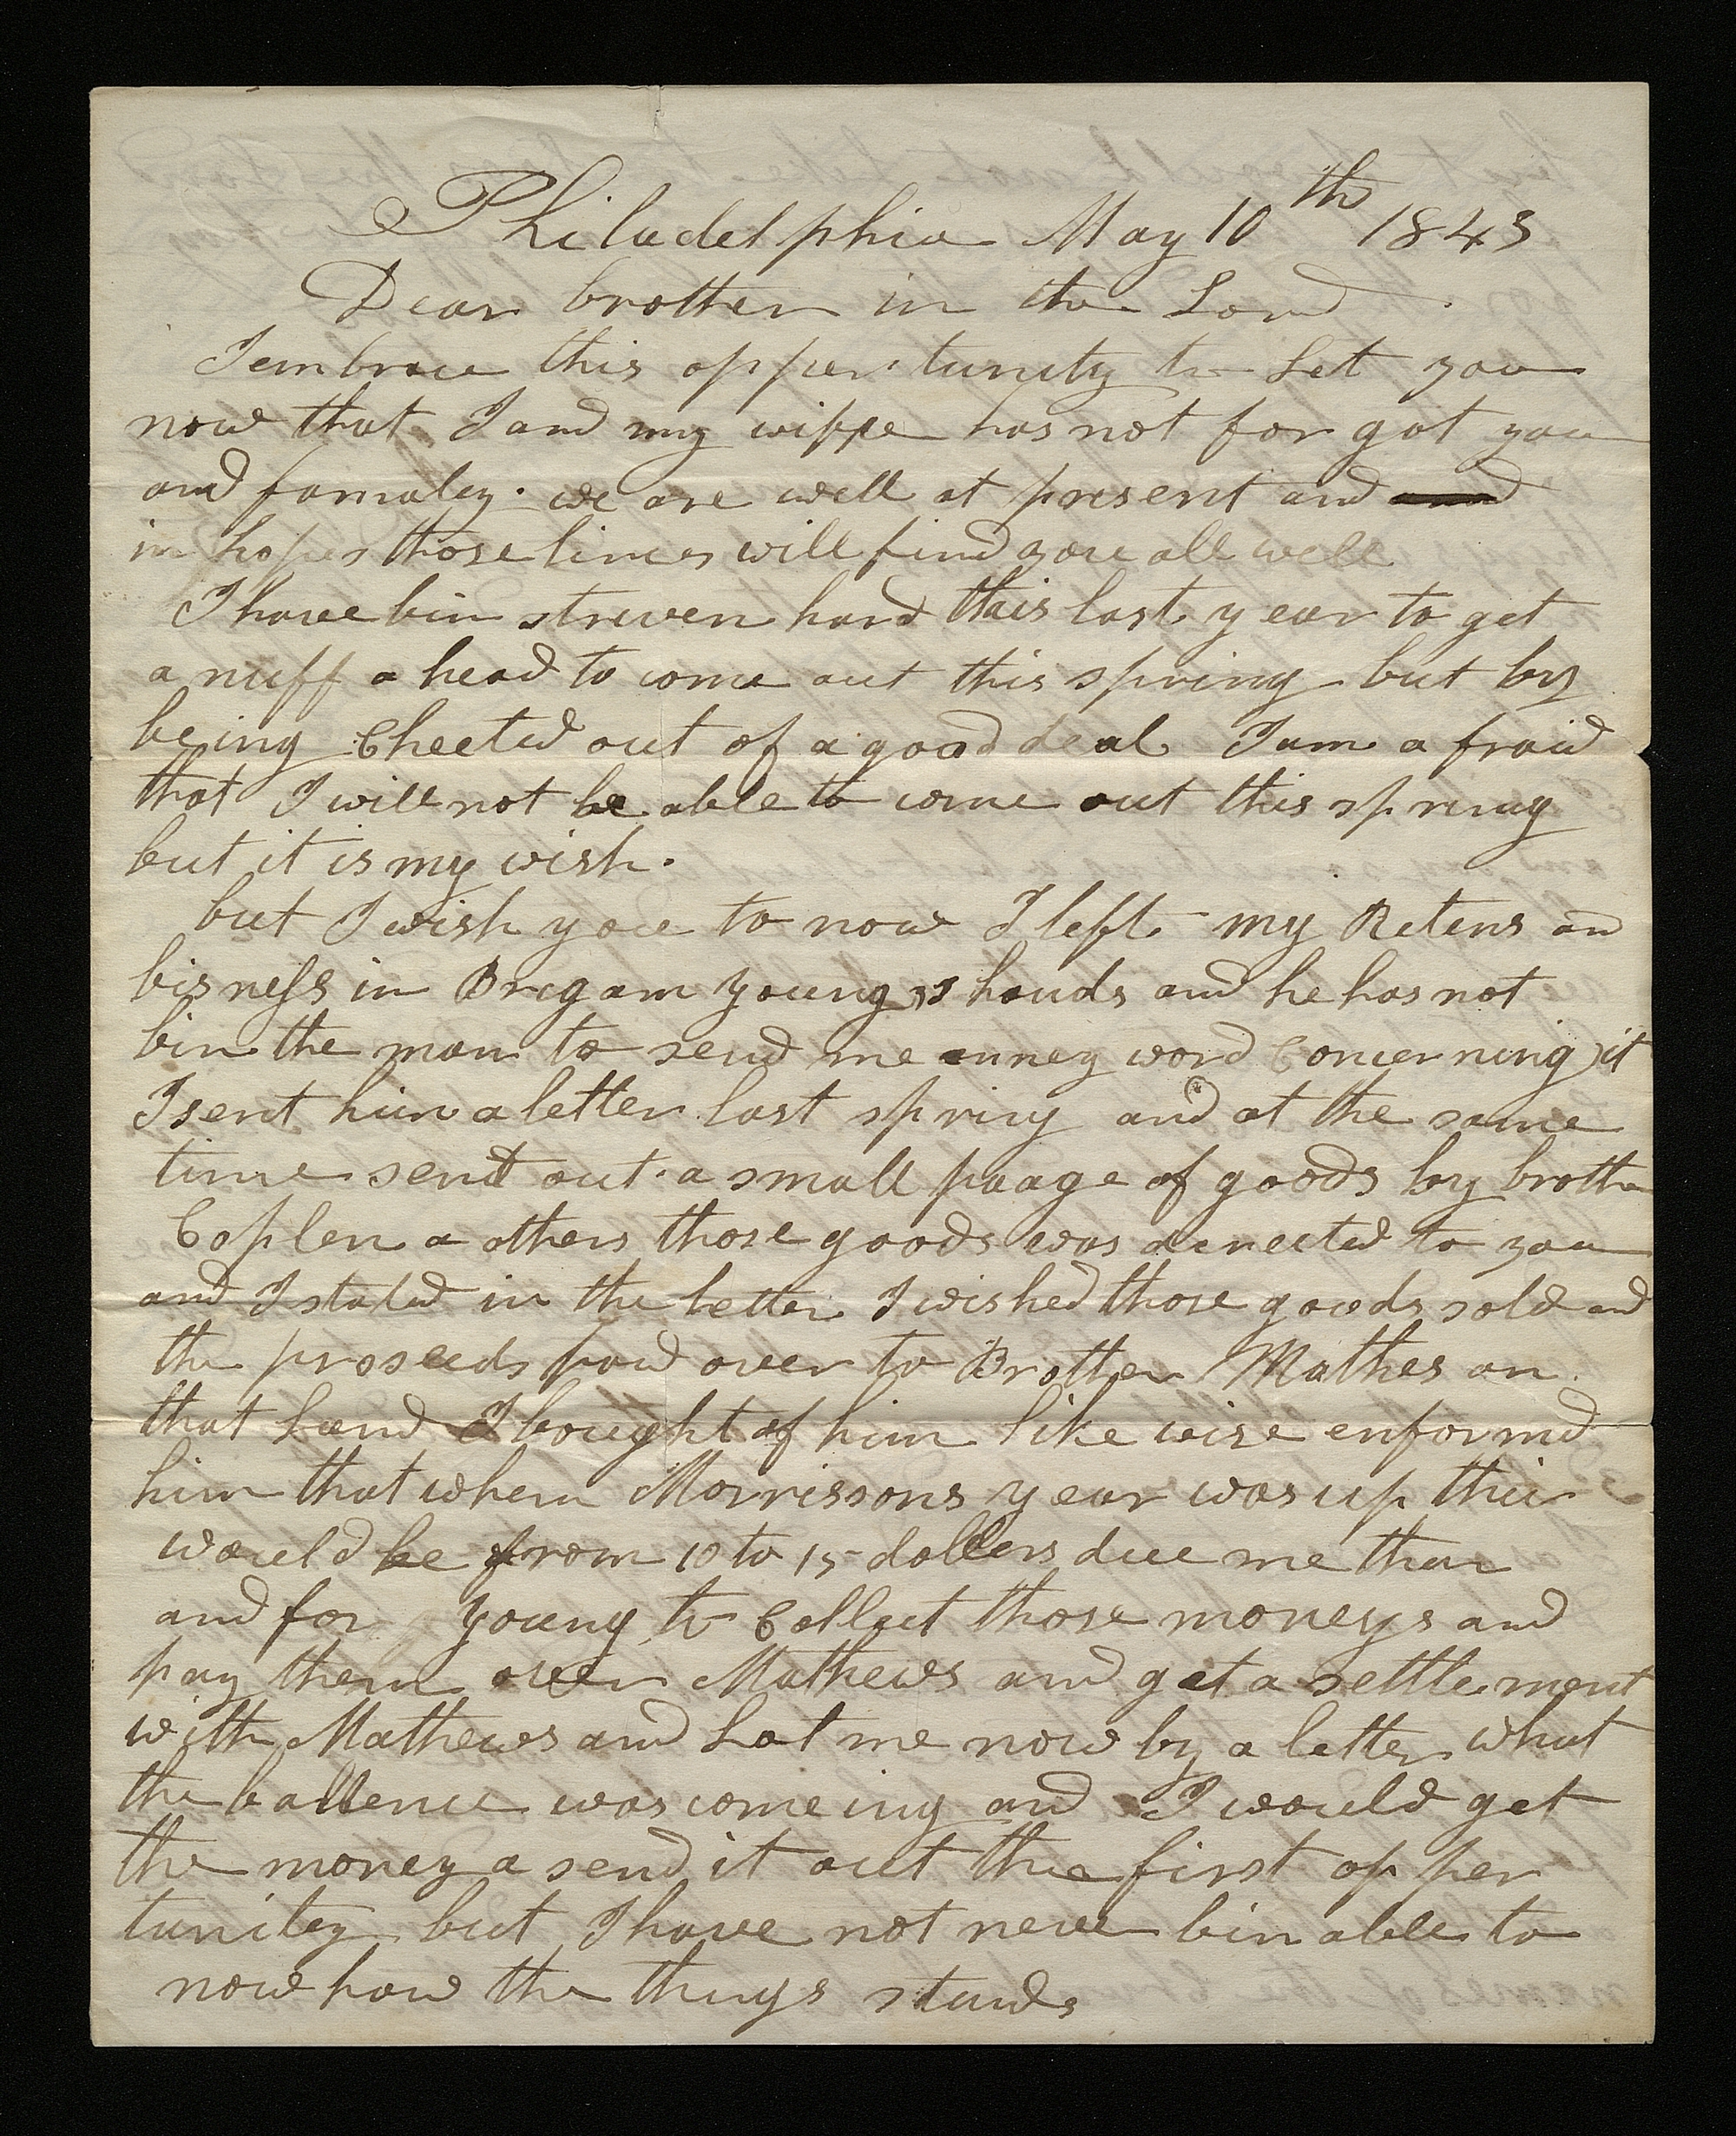 Philadelphia May 10th 1843
Dear brother in the Lord
I embrace this oppertunity to Let you
now that I and my wiffe has not for got you
and famaley. we are well at present and and
in hopes those lines will find you all well
I have bin striven hard this last year to get
a nuff a head to come out this spring but by
being Cheeted out of a good deal I am a fraid
that I will not be able to come out this spring
but it is my wish.
but I wish you to now I left my Retens an
bisness in Brigam youngs hands and he has not
bin the man to send me enney word Concerning it
I sent him a letter last spring and at the same
time send out a small paage of goods by broth
Coplen a others those goods was derected to you
and I stated in the letter I wished those goods sold and
the proseeds paid over to Brother Mathes on
that Land I bought of him like wise enformd
him that when Morrissons year was up thir
would be from 10 to 15 dollers due me thar
and for young to Collect those moneys and
pay them over Mathews and get a settlement
with Mathews and Let me now by a letter what
the ballence was comeing and I would get
the money a send it out the first opper
tunitey but I have not never bin able to
now how the things stands